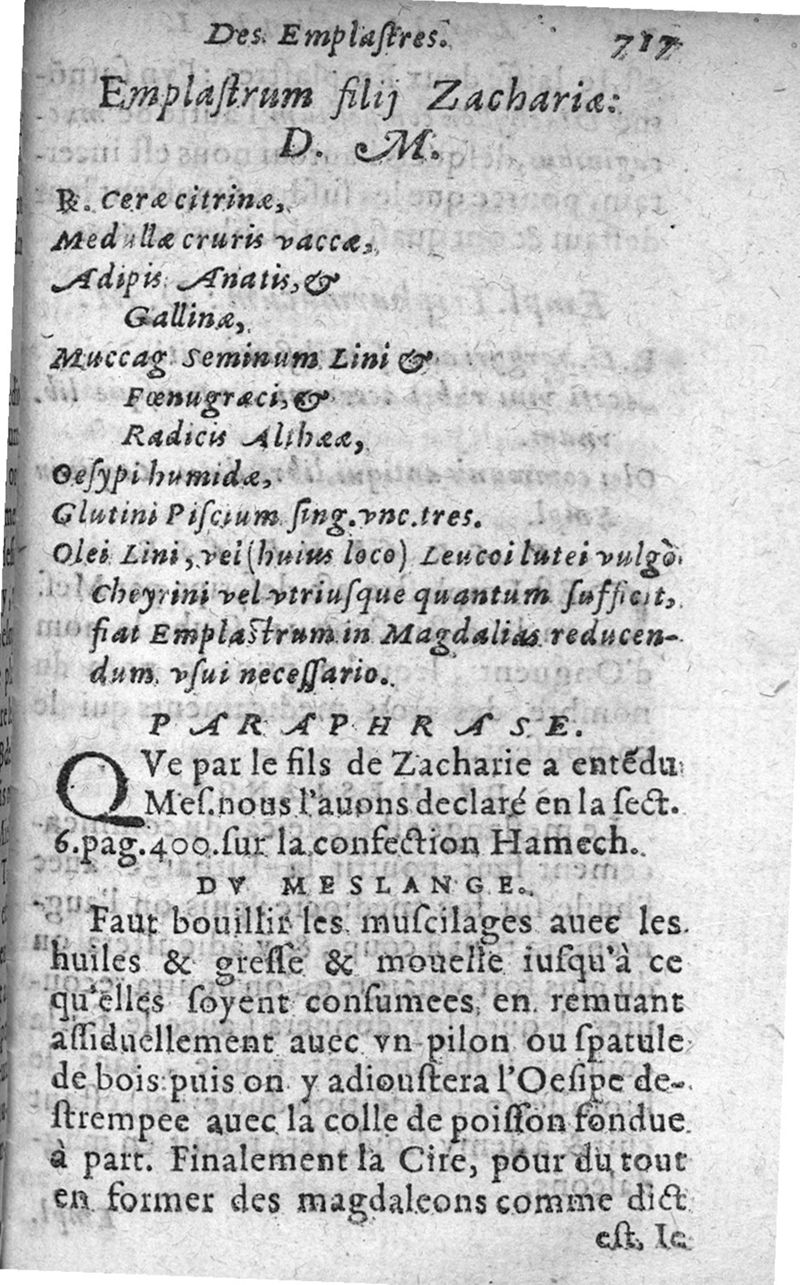 Des Emplaſtres. 717
Emplaſtrum filij Zachariæ:
D. M.
℞. Ceræ citrinæ,
Medullæ cruris vaccæ,
Adipis Anatis, &
Gallinæ,
Muccag Seminum Lini &
Fœnugræci, &
Radicis Althææ,
Oeſypi humidæ,
Glutini Piſcium ſing. vnc. tres.
Olei Lini, vel (huius loco) Leucoi lutei vulgò
Cheyrini vel vtriuſque quantum ſufficit,
fiat Emplaſtrum in Magdalias reducen-
dum vſui neceſſario.
PARAPHRASE.
QVe par le fils de Zacharie a entẽdu
Meſ. nous l'auons declaré en la ſect.
6. pag. 400. ſur la confection Hamech.
DV MESLANGE.
Faut bouillir les muſcilages auec les
huiles & greſſe & mouelle iuſqu'à ce
qu'elles ſoyent conſumees, en remuant
aſſiduellement auec vn pilon ou ſpatule
de bois: puis on y adiouſtera l'Oeſipe de-
ſtrempee auec la colle de poiſſon fondue
à part. Finalement la Cire, pour du tout
en former des magdaleons comme dict
eſt. Ie